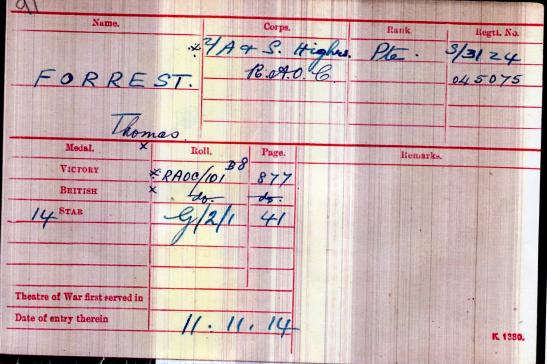 Name. Corps. Rank. Regtl. No.
× 2/A & S. Highrs. Pte. S/3124
FORREST. R.A.O.C. 045075
Thomas
Medal. × Roll. Page. Remarks.
VICTORY × RAOC/101 B8 877
BRITISH × do. do.
14 STAR G/2/1 41
Theatre of War first served in
Date of entry therein 11.11.14
K. 1380.